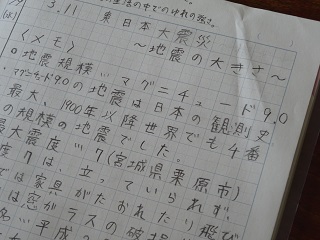 の生活の中でのゆれの強さ。
3.11 東日本大震災
～地震の大きさ～
〈メモ〉
○地震規模… マグニチュード9.0
マグニチュード9.0の地震は日本の観測史
最大、1900年以降世界でも4番
の規模の地震でした。
最大震度…7(宮城県栗原市)
度7は、立っていられず、
では家具がたおれたり飛び
は窓ガラスの破損
平成2